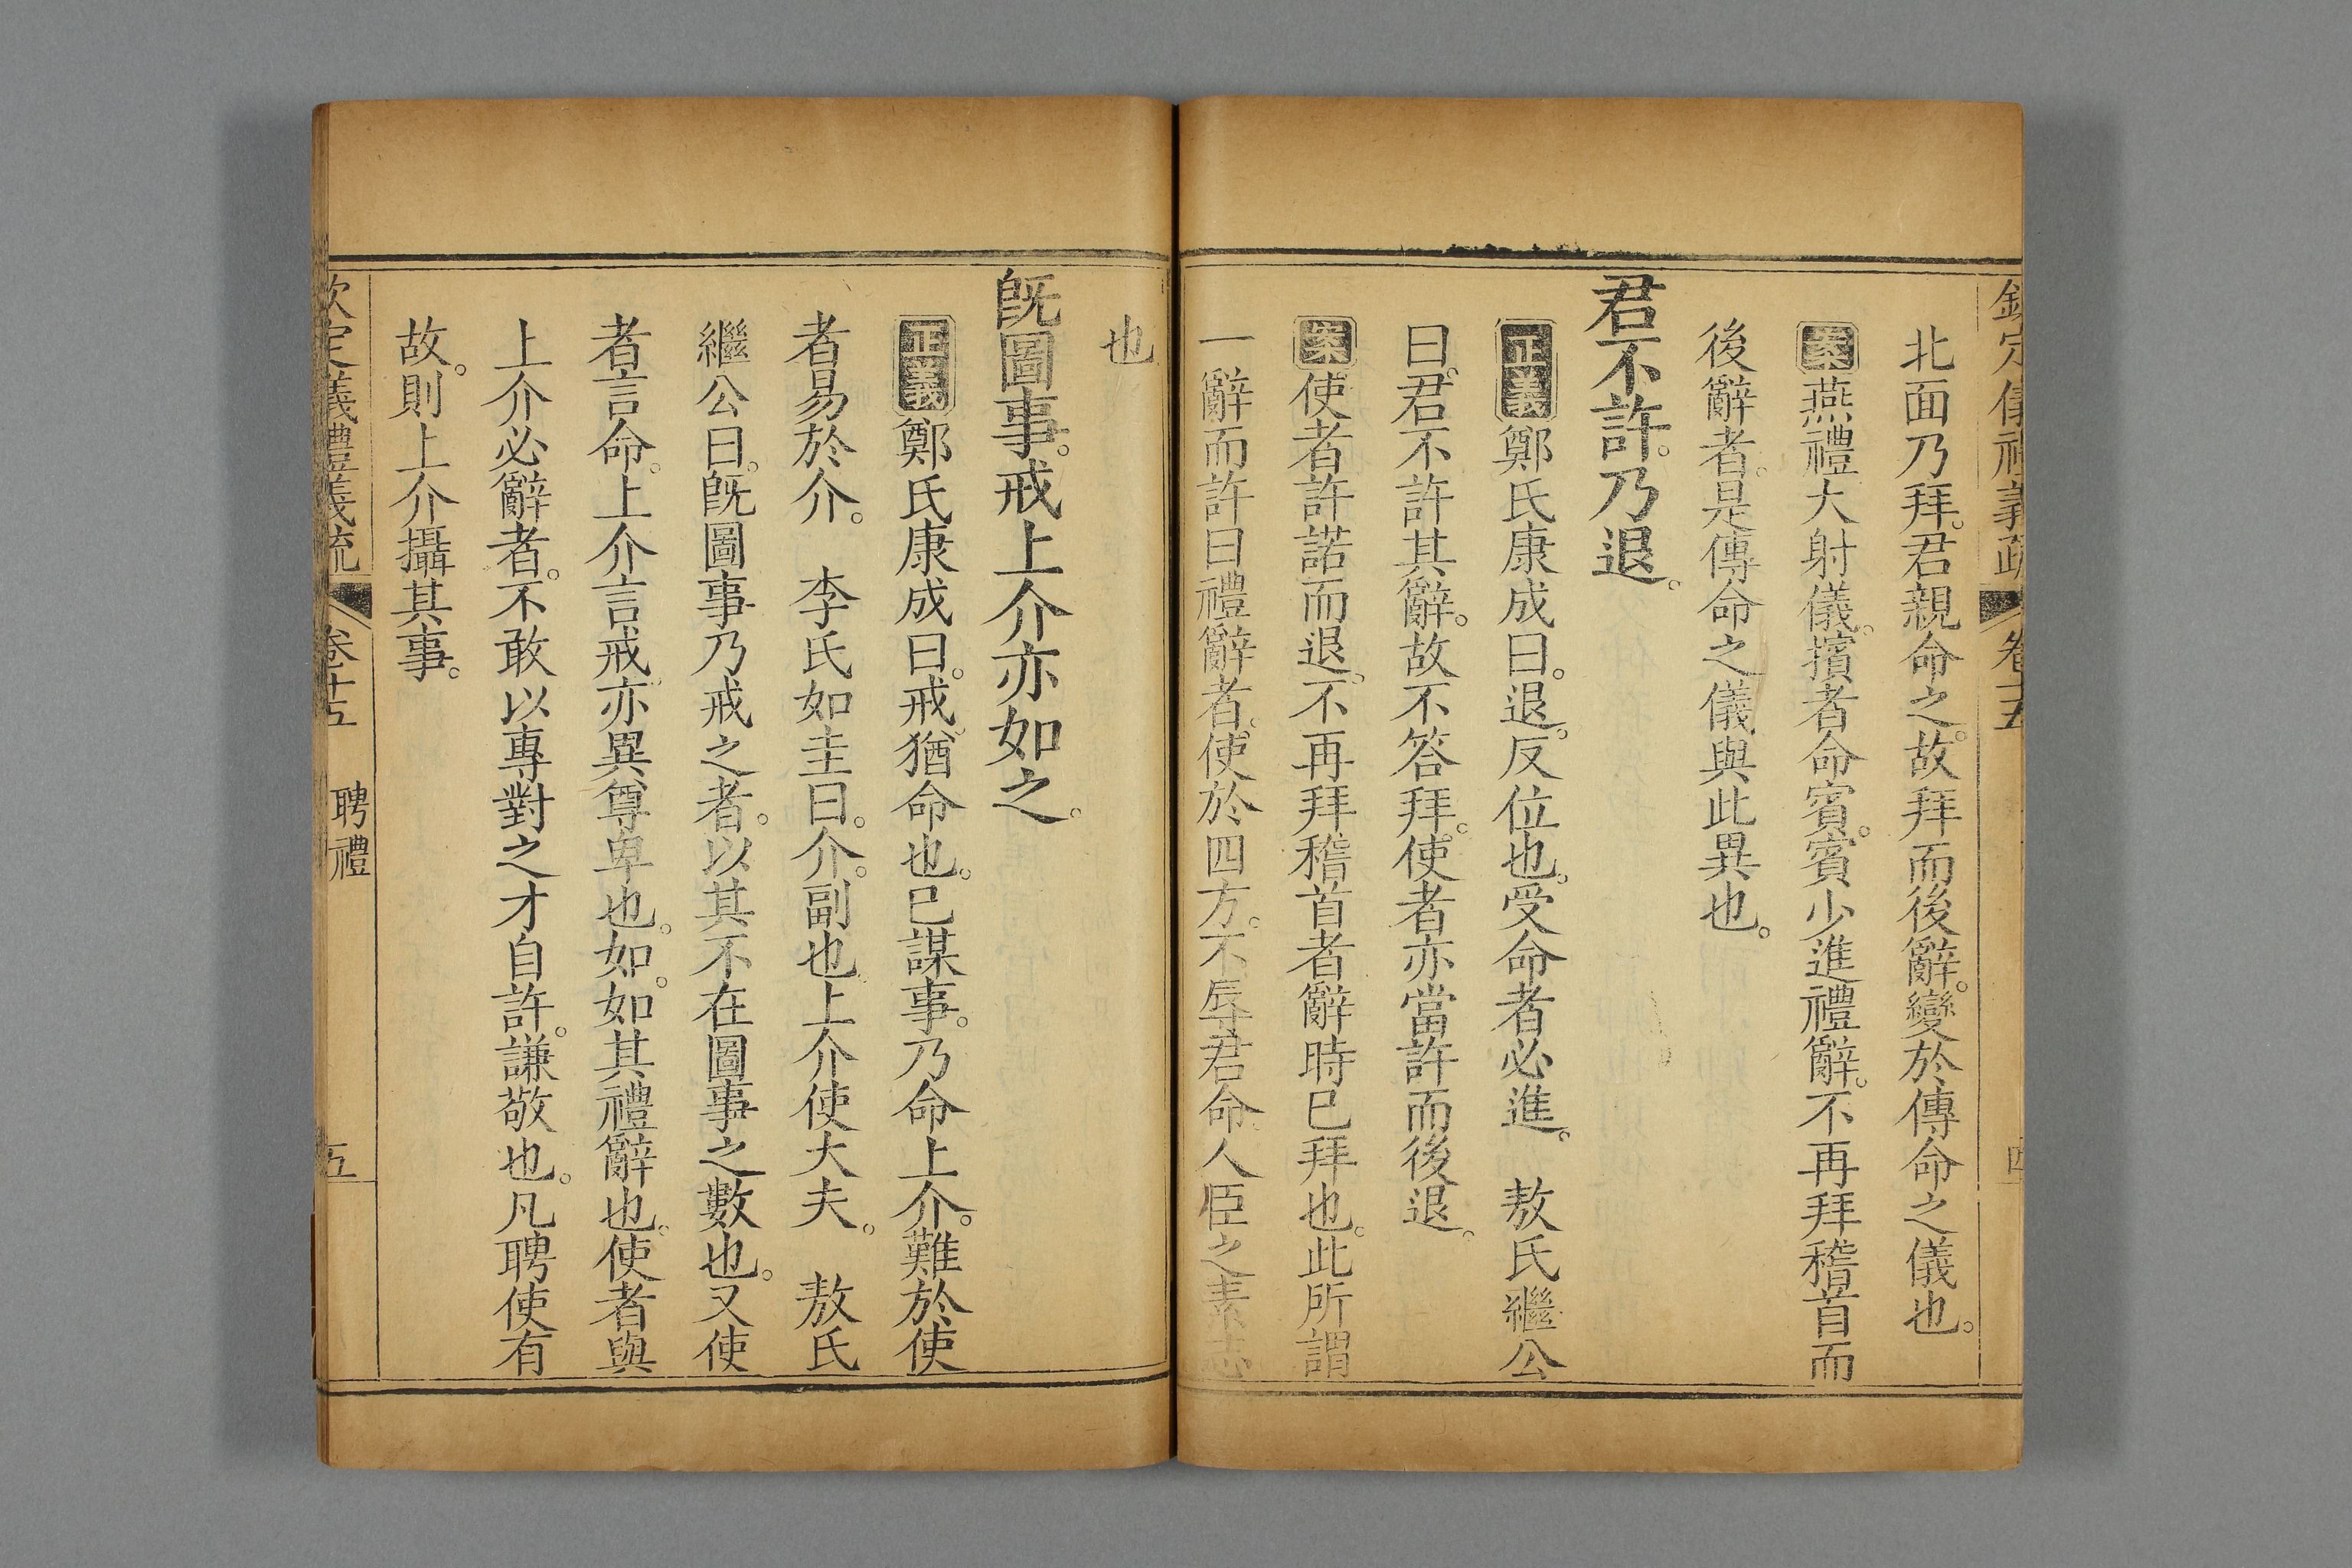 欽定儀禮義疏 卷十五 四
北面乃拜。君親命之。故拜而後辭。變於傳命之儀也。
案燕禮大射儀。擯者命賓。賓少進禮辭。不再拜稽首而
後辭者。是傳命之儀與此異也。
君不許。乃退。
正義鄭氏康成曰。退。反位也。受命者必進。 敖氏繼公
曰。君不許其辭。故不答拜。使者亦當許而後退。
案使者許諾而退。不再拜稽首者辭時已拜也。此所謂
一辭而許曰禮辭者。使於四方。不辱君命。人臣之素志
也
旣圖事。戒上介亦如之。
正義鄭氏康成曰。戒。猶命也。已謀事。乃命上介。難於使
者易於介。 李氏如圭曰。介。副也。上介使大夫。 敖氏
繼公曰。旣圖事乃戒之者。以其不在圖事之數也。又使
者言命。上介言戒。亦異尊卑也。如。如其禮辭也。使者與
上介必辭者。不敢以專對之才自許。謙敬也。凡聘使有
故。則上介攝其事。
欽定儀禮義疏 卷十五 聘禮 五